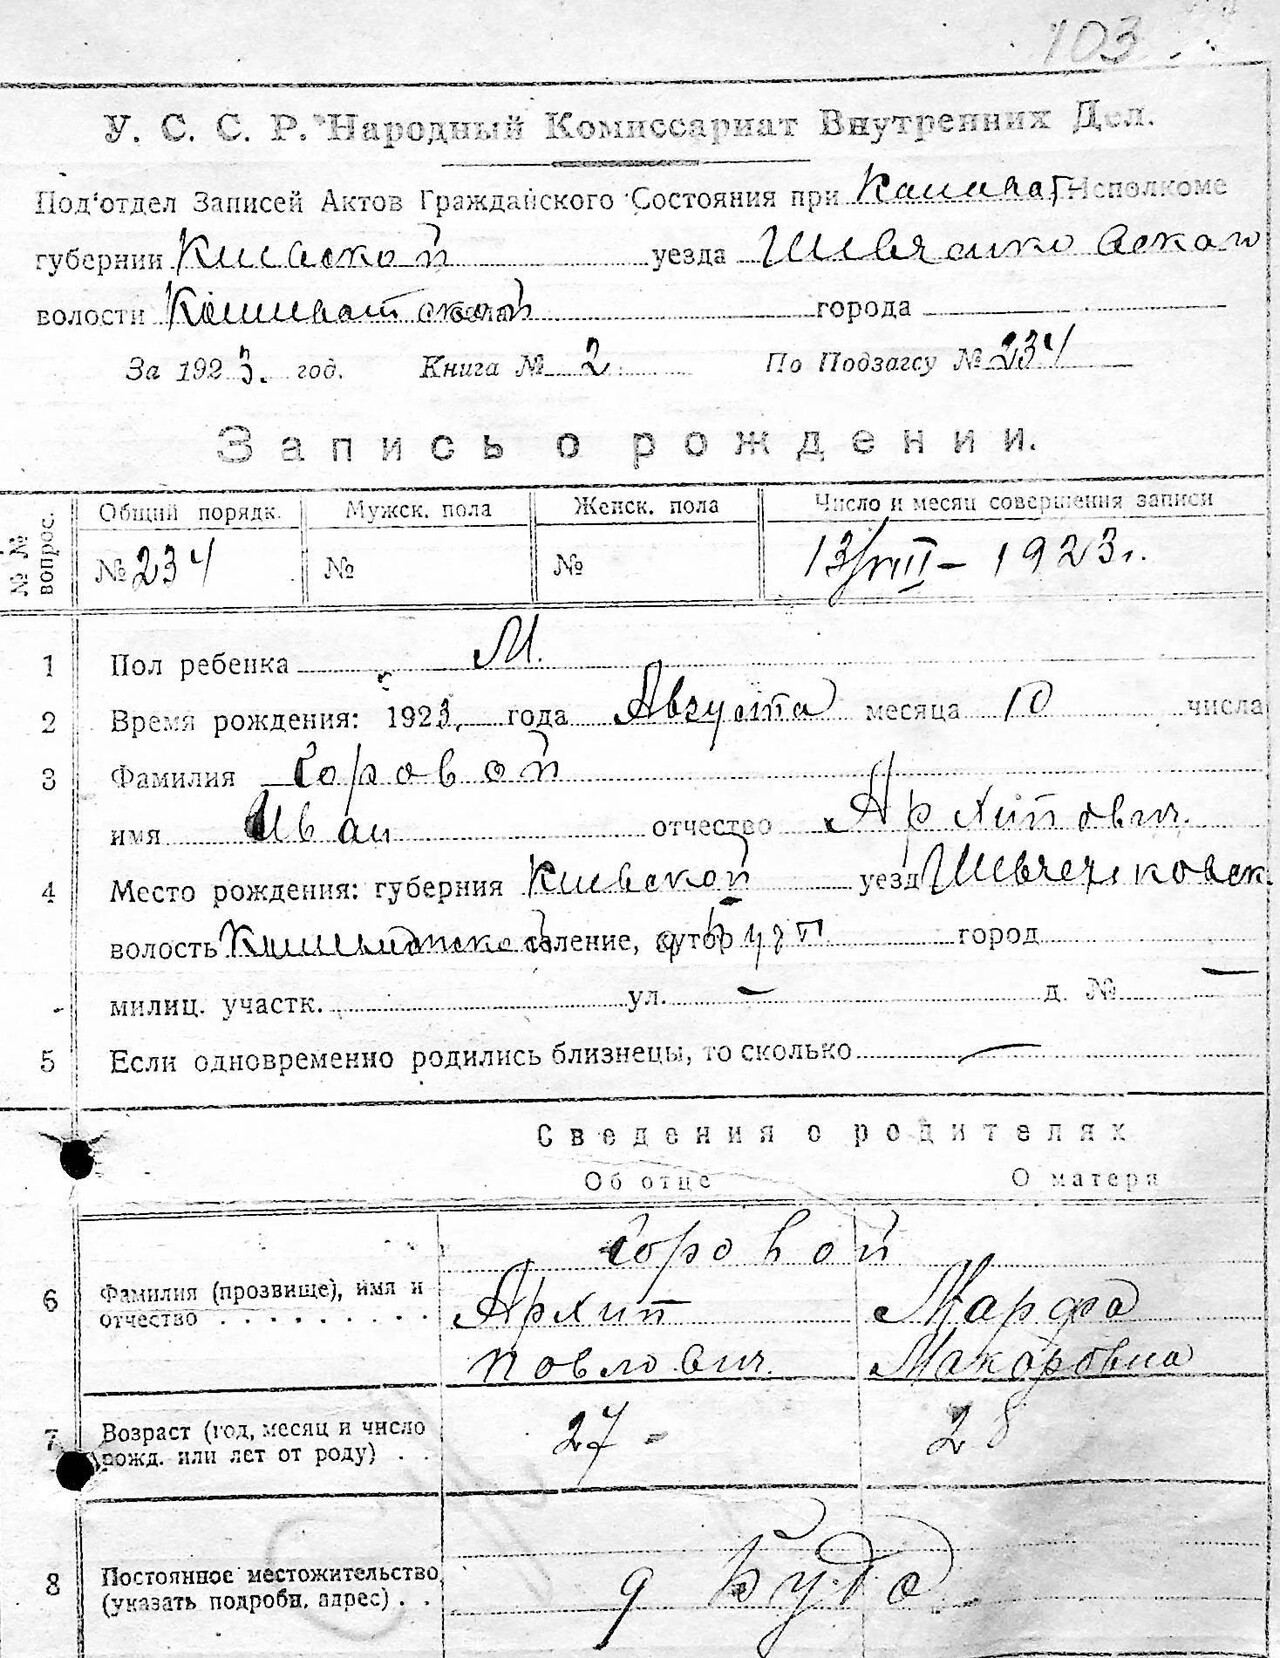 103
У. С. С. Р. Народный Комиссариат Внутренних Дел.
Под'отдел Записей Актов Гражданского Состояния при Кашеват Исполкоме
губернии Киевской уезда Шевченковского
волости Кошеватской города
За 1923. год. Книга № 2. По Подзагсу № 234
Запись о рождении.
№ № вопрос. Общий порядк. Мужск. пола Женск. пола Число и месяц совершения записи
№ 234 № № 13/VIII – 1923 г.
1 Пол ребенка М.
2 Время рождения: 1923. года Августа месяца 10 числа
3 Фамилия Горовой
имя Иван отчество Архипович.
4 Место рождения: губерния Киевской уезд Шевченковск.
волость селение, хутор город
милиц. участк. ул. – д. № –
5 Если одновременно родились близнецы, то сколько —
Сведения о родителях
Об отце О матери
Горовой
6 Фамилия (прозвище), имя и отчество . . . . . . . . . Архип Марфа
Повлович. Макаровна
7 Возраст (год, месяц и число рожд. или лет от роду) . . 27 - 28
8 Постоянное местожительство (указать подробн. адрес) . . д Буда